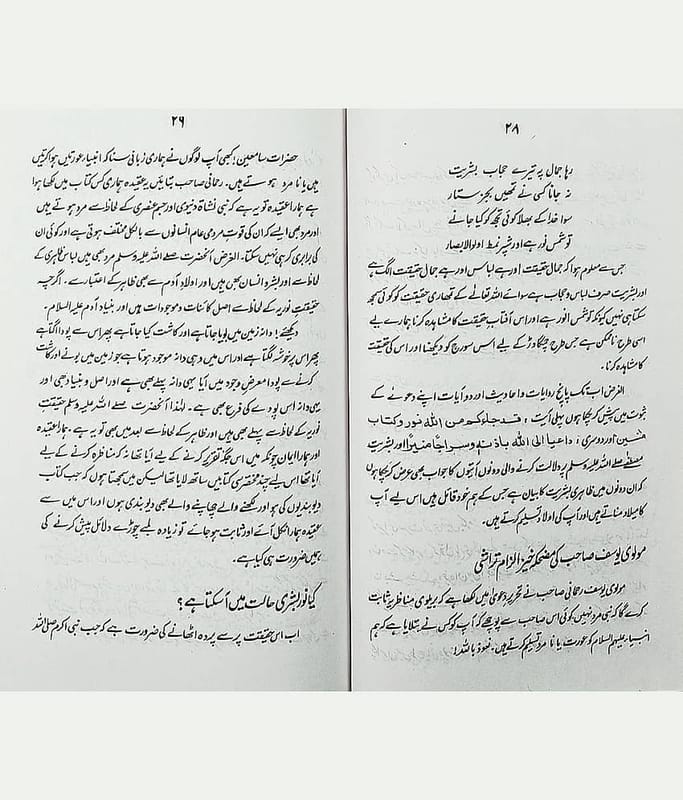 ۲۸
رہا جمال پہ تیرے حجاب بشریت
نہ جانا کسی نے تمہیں بجز ستار
سوا خدا کے بھلا کوئی تجھ کو کیا جانے
تو شمس نور ہے اور شپر نمط اولوالابصار
جس سے معلوم ہوا کہ جمال حقیقت اور ہے لباس اور ہے جمال حقیقت الگ ہے
اور بشریت صرف لباس و حجاب ہے سوائے اللہ تعالے کے تمہاری حقیقت کو کوئی سمجھ
سکتا ہی نہیں کیونکہ تو شمس انور ہے اور اس آفتاب حقیقت کا مشاہدہ کرنا ہمارے لیے
اسی طرح ناممکن ہے جس طرح چمگادڑ کے لیے اس سورج کو دیکھنا اور اس کی حقیقت
کا مشاہدہ کرنا۔
الغرض اب تک پانچ روایات و احادیث اور دو آیات اپنے دعوے کے
ثبوت میں پیش کر چکا ہوں پہلی آیت: قد جاءکم من اللہ نور و کتاب
مبین اور دوسری: داعیا الی اللہ باذنہ و سراجا منیرا اور بشریت
مصطفے صلے اللہ علیہ وسلم پر دلالت کرنے والی دونوں آیتوں کا جواب بھی عرض کر چکا ہوں
کہ ان دونوں میں ظاہری بشریت کا بیان ہے جس کے ہم خود قائل ہیں اس لیے آپ
کا میلاد مناتے ہیں اور آپ کی اولاد تسلیم کرتے ہیں۔
مولوی یوسف صاحب کی مضحکہ خیز الزام تراشی
مولوی یوسف رحمانی صاحب نے تحریر دعوی میں لکھا ہے کہ بریلوی مناظر یہ ثابت
کرے گا کہ نبی مرد نہیں کوئی اس صاحب سے پوچھے کہ آپ کو کس نے بتلایا ہے کہ ہم
انبیاء علیہم السلام کو عورت یا نا مرد تسلیم کرتے ہیں۔ نعوذ باللہ!
۲۹
حضرات سامعین! کبھی آپ لوگوں نے ہماری زبانی سنا کہ انبیاء عورتیں ہوا کرتیں
ہیں یا نا مرد ہوتے ہیں۔ رحمانی صاحب بتائیں یہ عقیدہ ہماری کس کتاب میں لکھا ہوا
ہے ہمارا عقیدہ تو یہ ہے کہ نبی نشاۃ دنیوی اور جسم عنصری کے لحاظ سے مرد ہوتے ہیں
اور مرد بھی ایسے کہ ان کی قوت مردمی عام انسانوں سے بالکل مختلف ہوتی ہے اور کوئی ان
کی برابری کر ہی نہیں سکتا۔ الغرض آنحضرت صلے اللہ علیہ وسلم مرد بھی ہیں لباس ظاہری کے
لحاظ سے اور بشر و انسان بھی ہیں اور اولاد آدم سے بھی ظاہر کے اعتبار سے۔ اگرچہ
حقیقت نوریہ کے لحاظ سے اصل کائنات و موجودات ہیں اور بنیاد آدم علیہ السلام۔
دیکھئے! دانہ زمین میں بویا جاتا ہے اور کاشت کیا جاتا ہے پھر اس سے پودا اگتا ہے
پھر اس پر خوشہ لگتا ہے اور اس میں وہی دانہ موجود ہوتا ہے جو زمین میں بونے اور کاشت
کرنے سے پودا معرض وجود میں آیا یہی دانہ پہلے بھی ہے اور اصل و بنیاد بھی اور
یہی دانہ اس پودے کی فرع بھی ہے۔ لہٰذا آنحضرت صلے اللہ علیہ وسلم حقیقت
نوریہ کے لحاظ سے پہلے بھی ہیں اور ظاہر کے لحاظ سے بعد میں بھی تو یہ ہے ہمارا عقیدہ
اور ہمارا ایمان چونکہ میں اس جگہ تقریر کرنے کے لیے آیا تھا نہ کہ مناظرہ کرنے کے لیے
آیا تھا اس لیے چند مختصر سی کتابیں ساتھ لایا تھا لیکن میں سمجھتا ہوں کہ جب کتاب
دیوبندیوں کی ہو اور لکھنے والے چھاپنے والے بھی دیوبندی ہوں اور اس میں سے
عقیدہ ہمارا نکل آئے اور ثابت ہو جائے تو زیادہ لمبے چوڑے دلائل پیش کرنے کی
ہمیں ضرورت ہی کیا ہے۔
کیا نور بشری حالت میں آ سکتا ہے؟
اب اس حقیقت پر سے پردہ اٹھانے کی ضرورت ہے کہ جب نبی اکرم صلی اللہ